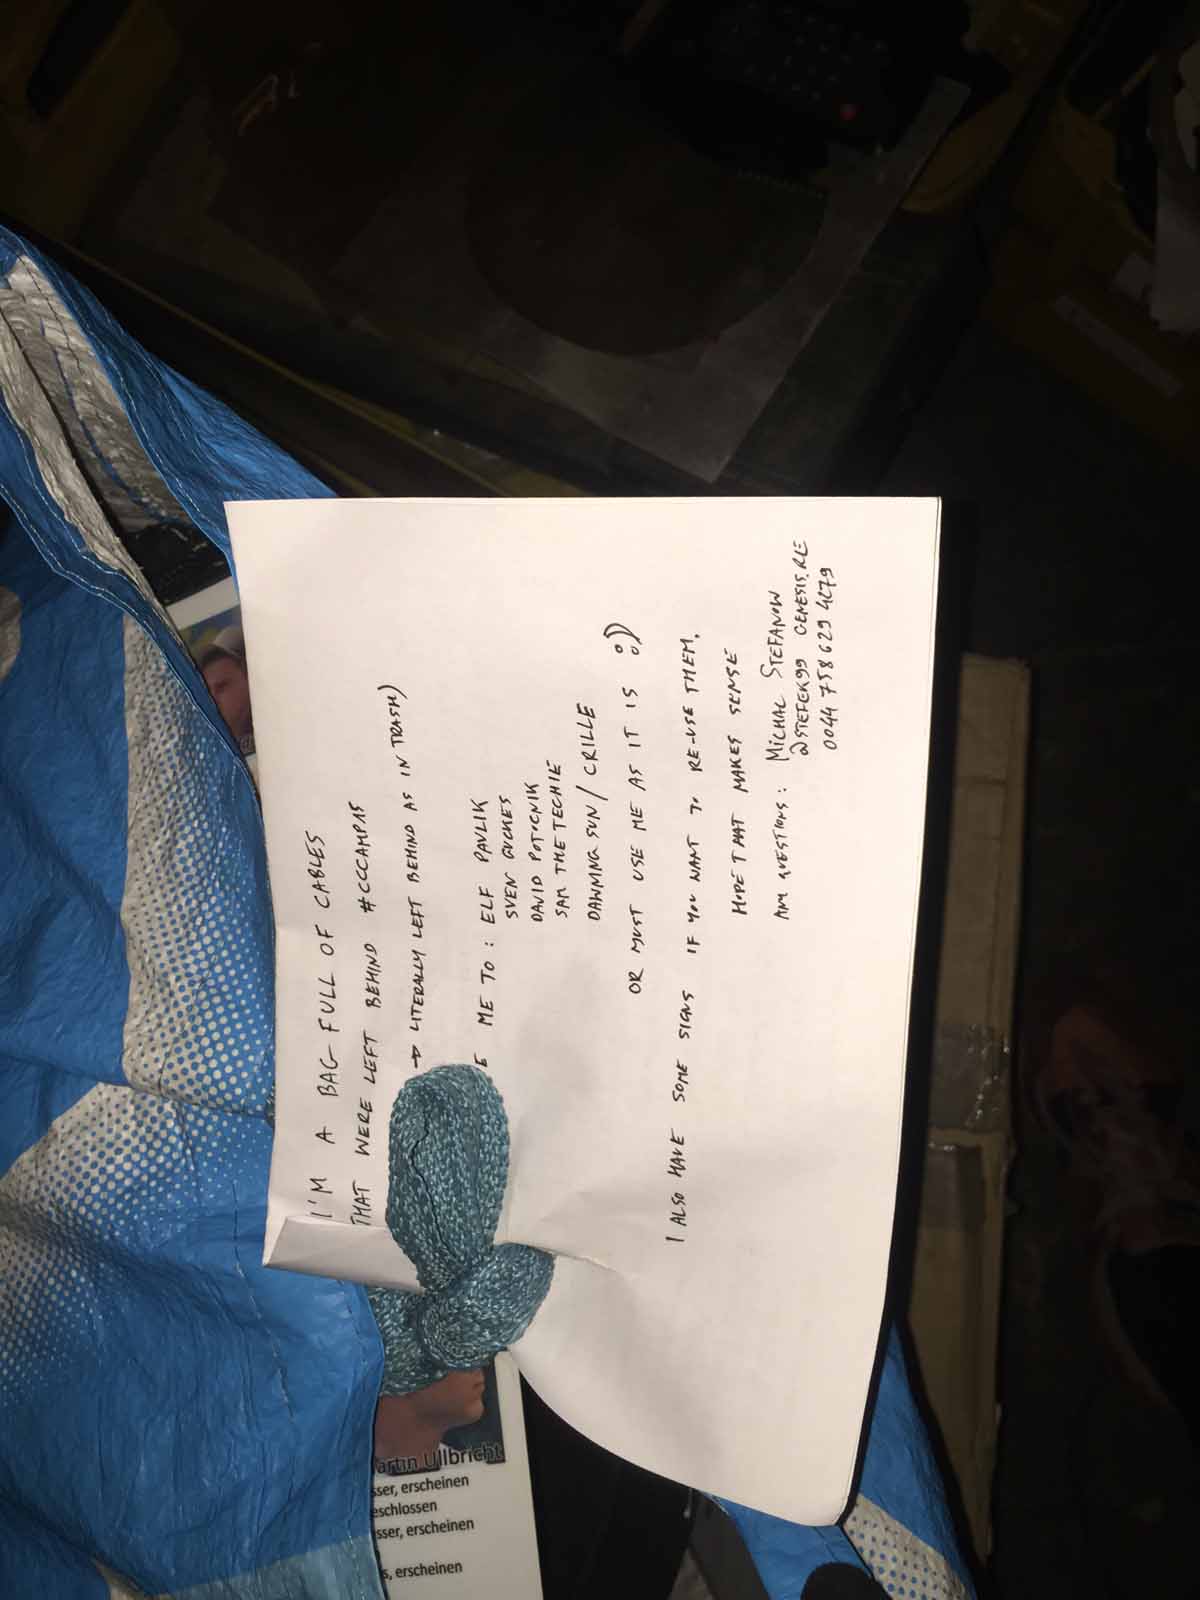 I'M A BAG FULL OF CABLES
THAT WERE LEFT BEHIND #CCCAMP15
→ LITERALLY LEFT BEHIND AS IN TRASH)
ME TO: ELF PAVLIK
SVEN GUCKES
DAVID POTOCNIK
SAM THE TECHIE
DAWNING SUN / CRILLE
OR MUST USE ME AS IT IS :))
I ALSO HAVE SOME SIGNS IF YOU WANT TO RE-USE THEM.
HOPE THAT MAKES SENSE
ANY QUESTIONS: MICHAL STEFANOW
@STEFEK99 GENESIS.RE
0044 758 629 4279
artin Ullbricht
sser, erscheinen
eschlossen
sser, erscheinen
s, erscheinen